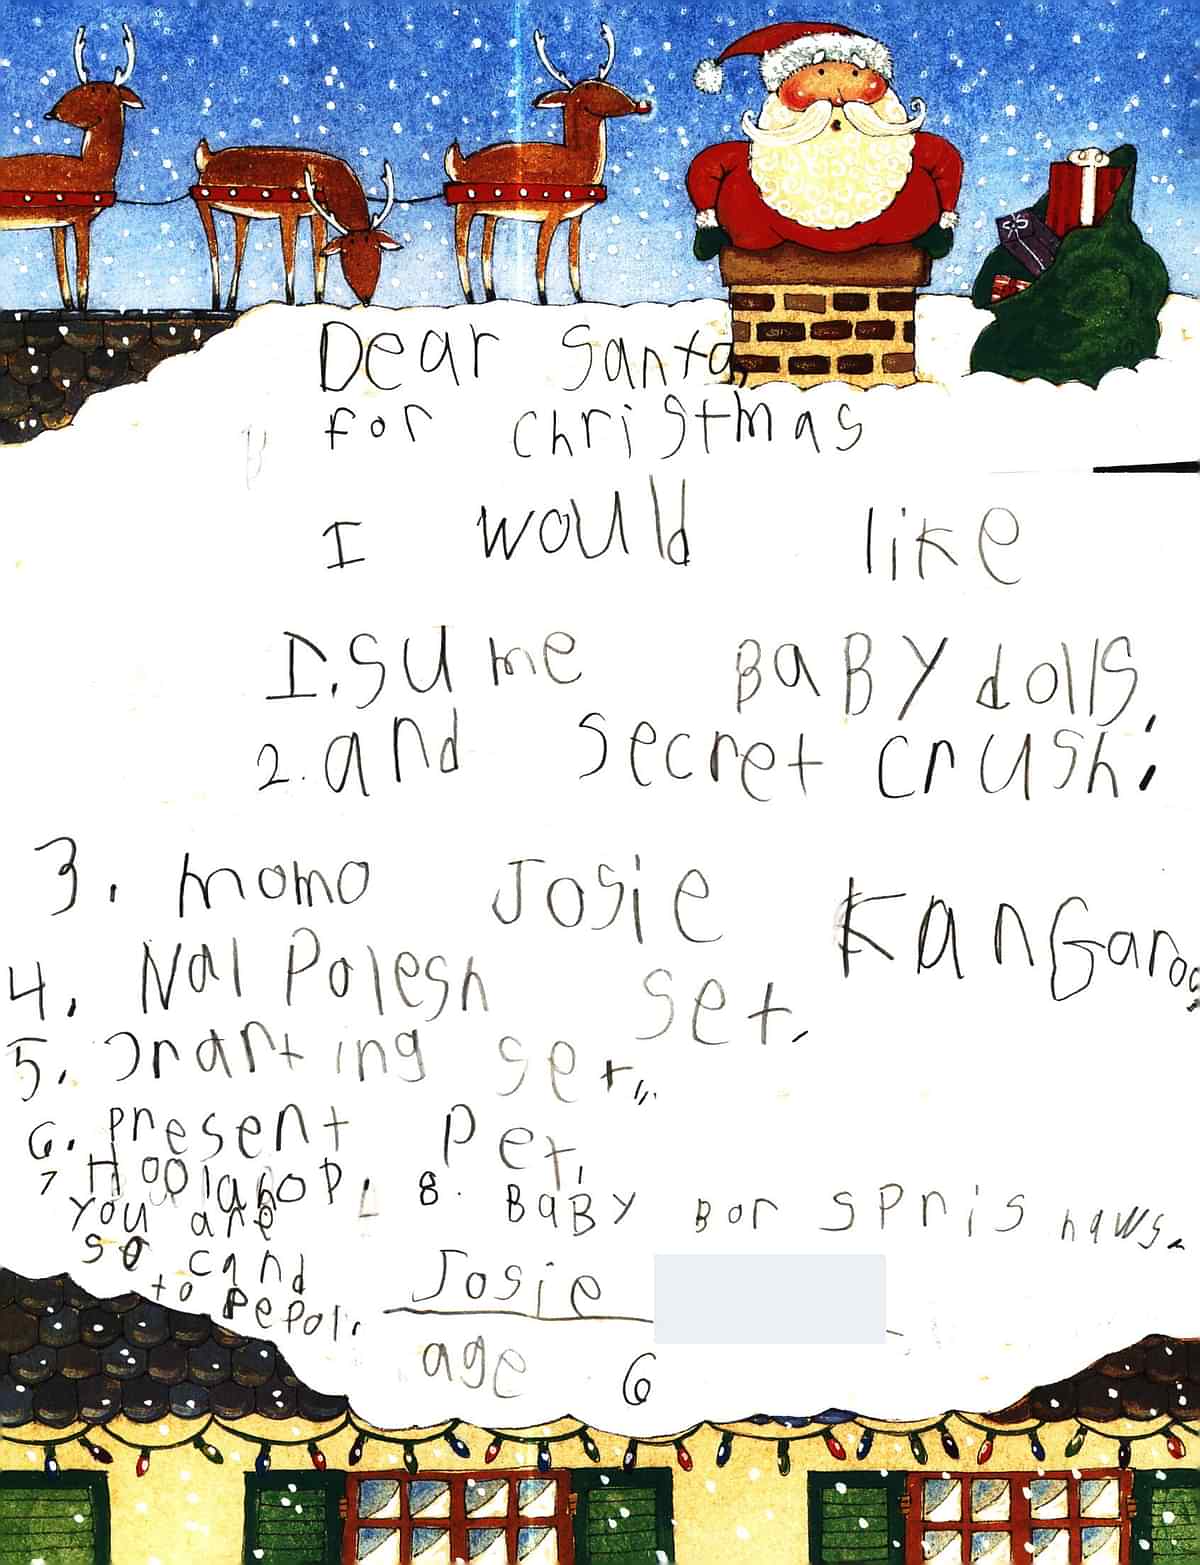 Dear Santa,
for christmas
I would like
1. sume BaBy dolls,
2. and secret crush.
3. momo Josie KanGaroo,
4. Nal Polesh set,
5. Drarting set,,,
6. Present Pet,
7 Hoolahop, 8. BaBy Bor sPris haws.
you are
so cand
to Pepoli.
Josie
age 6